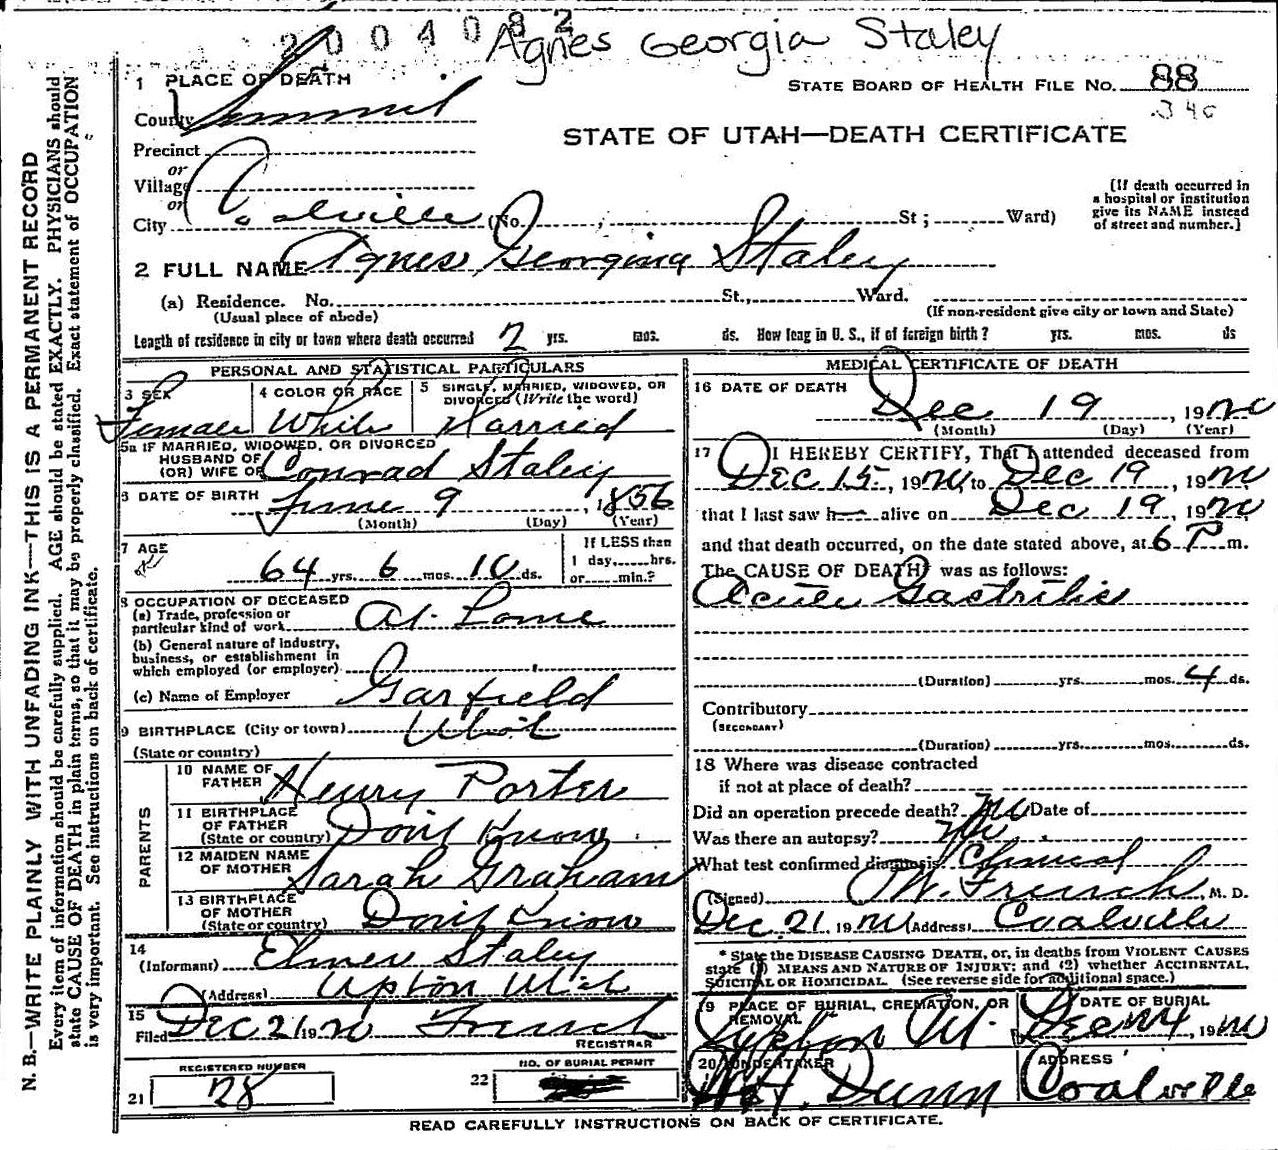 2004082 Agnes Georgia Staley
1 PLACE OF DEATH
STATE BOARD OF HEALTH FILE No. 88
340
County Summit
STATE OF UTAH—DEATH CERTIFICATE
Precinct
or
Village
or
City Coalville (No. , St; Ward)
[If death occurred in
a hospital or institution
give its NAME instead
of street and number.]
2 FULL NAME Agnes Georgina Staley
(a) Residence. No. St., Ward.
(Usual place of abode)
(If non-resident give city or town and State)
Length of residence in city or town where death occurred 2 yrs. mos. ds. How long in U. S., if of foreign birth? yrs. mos. ds
PERSONAL AND STATISTICAL PARTICULARS
3 SEX
Female
4 COLOR OR RACE
White
5 SINGLE, MARRIED, WIDOWED, OR
DIVORCED (Write the word)
Married
5a IF MARRIED, WIDOWED, OR DIVORCED
HUSBAND OF
(OR) WIFE OF Conrad Staley
6 DATE OF BIRTH June 9, 1856
(Month) (Day) (Year)
7 AGE
64 yrs. 6 mos. 10 ds.
If LESS than
1 day, hrs.
or min.?
8 OCCUPATION OF DECEASED
(a) Trade, profession or
particular kind of work At Home
(b) General nature of industry,
business, or establishment in
which employed (or employer)
(c) Name of Employer
Garfield
9 BIRTHPLACE (City or town) Utah
(State or country)
PARENTS
10 NAME OF
FATHER Henry Porter
11 BIRTHPLACE
OF FATHER
(State or country) Don't Know
12 MAIDEN NAME
OF MOTHER Sarah Graham
13 BIRTHPLACE
OF MOTHER
(State or country) Don't Know
14
(Informant) Elmer Staley
(Address) Upton Utah
15
Filed Dec 21 1920 French
REGISTRAR
REGISTERED NUMBER
21 28
NO. OF BURIAL PERMIT
22
MEDICAL CERTIFICATE OF DEATH
16 DATE OF DEATH
Dec 19, 1920
(Month) (Day) (Year)
17 I HEREBY CERTIFY, That I attended deceased from
Dec 15, 1920, to Dec 19, 1920
that I last saw h alive on Dec 19, 1920
and that death occurred, on the date stated above, at 6 P m.
The CAUSE OF DEATH was as follows:
Acute Gastritis
(Duration) yrs. mos. 4 ds.
Contributory
(SECONDARY)
(Duration) yrs. mos. ds.
18 Where was disease contracted
if not at place of death?
Did an operation precede death? No Date of
Was there an autopsy? No
What test confirmed diagnosis? Clinical
(Signed) M. French, M. D.
Dec 21, 1920 (Address) Coalville
* State the DISEASE CAUSING DEATH, or, in deaths from VIOLENT CAUSES
state (1) MEANS AND NATURE OF INJURY; and (2) whether ACCIDENTAL,
SUICIDAL or HOMICIDAL. (See reverse side for additional space.)
19 PLACE OF BURIAL, CREMATION, OR
REMOVAL
Upton Ut.
DATE OF BURIAL
Dec, 1920
20 UNDERTAKER
Dunn
ADDRESS
Coalville
READ CAREFULLY INSTRUCTIONS ON BACK OF CERTIFICATE.
N. B.—WRITE PLAINLY WITH UNFADING INK—THIS IS A PERMANENT RECORD
Every item of information should be carefully supplied. AGE should be stated EXACTLY. PHYSICIANS should
state CAUSE OF DEATH in plain terms, so that it may be properly classified. Exact statement of OCCUPATION
is very important. See instructions on back of certificate.